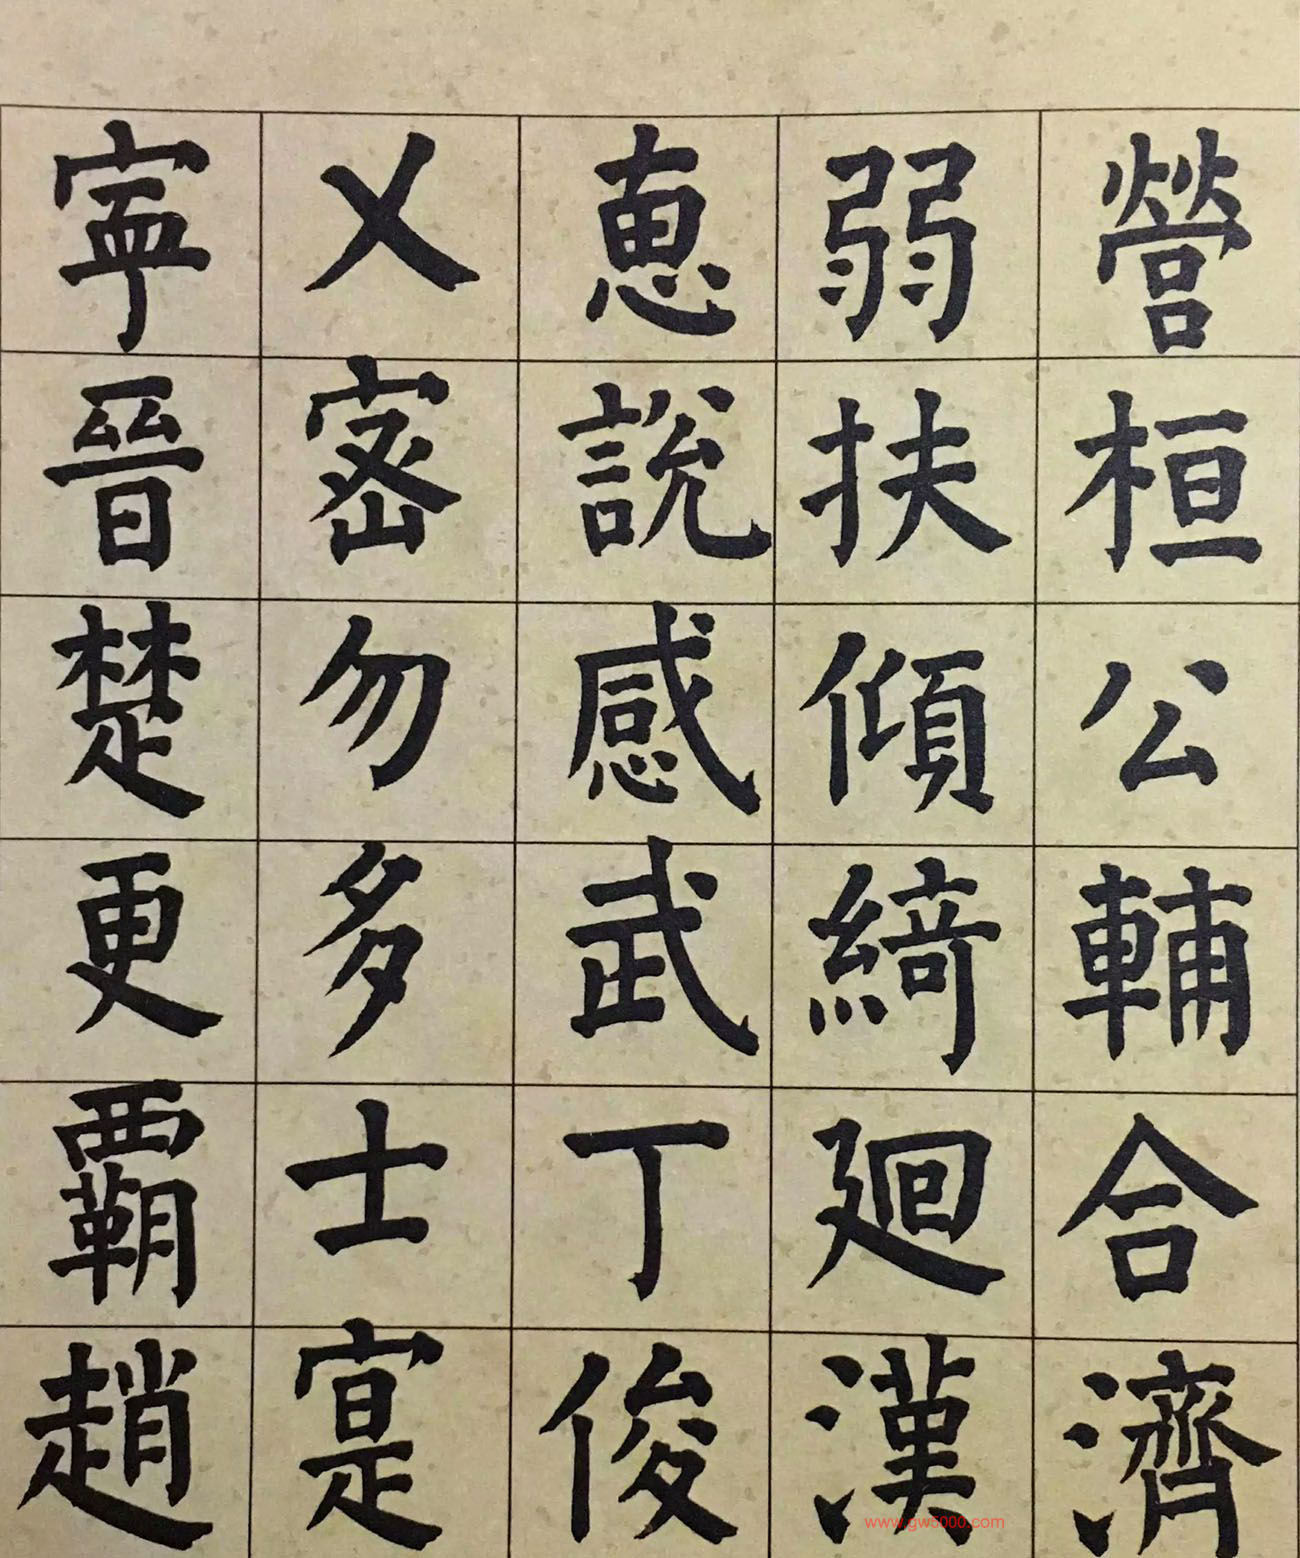 營桓公輔合濟
弱扶傾綺迴漢
恵說感武丁俊
乂密勿多士寔
寧晉楚更覇趙
www.gw5000.com